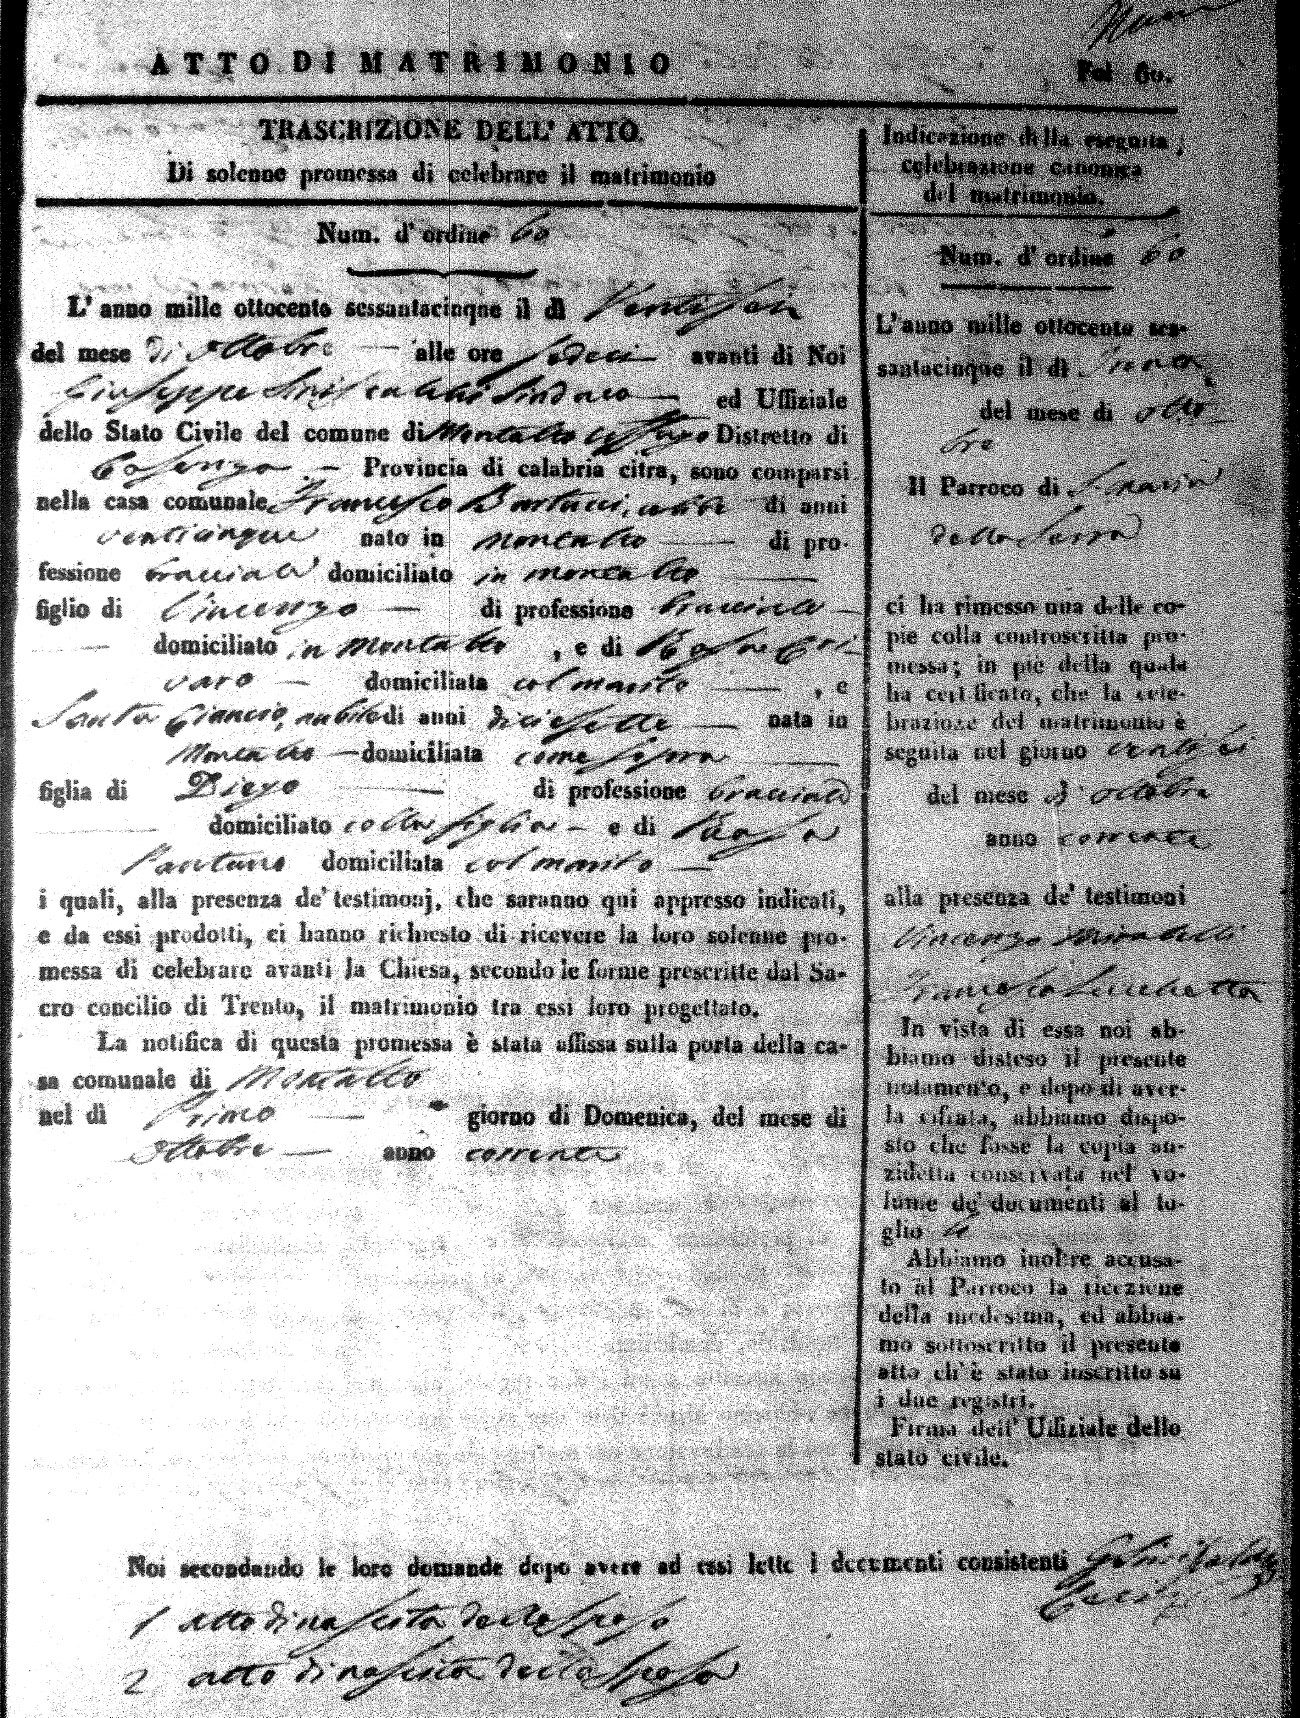 ATTO DI MATRIMONIO
Fol 60.
TRASCRIZIONE DELL' ATTO.
Di solenne promessa di celebrare il matrimonio
Num. d' ordine 60
L' anno mille ottocento sessantacinque il dì Ventisei
del mese di Ottobre alle ore sedeci avanti di Noi
Giuseppe Sindaco ed Uffiziale
dello Stato Civile del comune di Montalto Uffugo Distretto di
Cosenza Provincia di calabria citra, sono comparsi
nella casa comunale Francesco Bartucci, celibe di anni
venticinque nato in Montalto di pro-
fessione bracciale domiciliato in Montalto
figlio di Vincenzo di professione bracciale
domiciliato in Montalto , e di Rosa Cri
varo domiciliata col marito , e
Santa Ciancio, nubile di anni diciessette nata in
Montalto domiciliata come sopra
figlia di Diego di professione bracciale
domiciliato colla figlia e di Rosa
Pantano domiciliata col marito
i quali, alla presenza de' testimonj, che saranno qui appresso indicati,
e da essi prodotti, ci hanno richiesto di ricevere la loro solenne pro-
messa di celebrare avanti la Chiesa, secondo le forme prescritte dal Sa-
cro concilio di Trento, il matrimonio tra essi loro progettato.
La notifica di questa promessa è stata affissa sulla porta della ca-
sa comunale di Montalto
nel dì Primo giorno di Domenica, del mese di
Ottobre anno corrente
Indicazione della eseguita
celebrazione canonica
del matrimonio.
Num. d' ordine 60
L'anno mille ottocento ses-
santacinque il dì
del mese di otto
bre
Il Parroco di S. Maria
della Serra
ci ha rimesso una delle co-
pie colla controscritta pro-
messa; in piè della quale
ha certificato, che la cele-
brazione del matrimonio è
seguita nel giorno ventisei
del mese di ottobre
anno corrente
alla presenza de' testimoni
Vincenzo Mirabelli
Francesco Lucchetta
In vista di essa noi ab-
biamo disteso il presente
notamento, e dopo di aver-
la cifrata, abbiamo dispo-
sto che fosse la copia an-
zidetta conservata nel vo-
lume de' documenti al fo-
glio
Abbiamo inoltre accusa-
to al Parroco la ricezione
della medesima, ed abbia-
mo sottoscritto il presente
atto ch' è stato inscritto su
i due registri.
Firma dell' Uffiziale dello
stato civile.
Noi secondando le loro domande dopo avere ad essi lette i documenti consistenti
1 atto di nascita dello sposo
2 atto di nascita della sposa